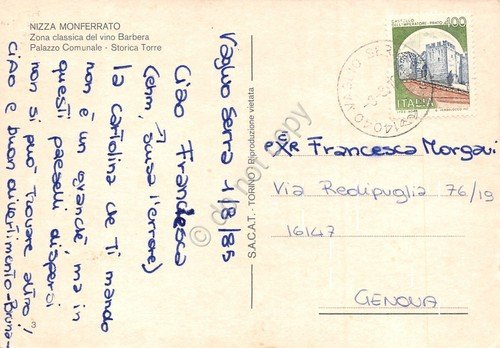 NIZZA MONFERRATO
Zona classica del vino Barbera
Palazzo Comunale - Storica Torre
Vaglio Serra 1/8/85
Ciao Francesca
(ehm, scusa l'errore)
la cartolina che ti mando
non è un granché, ma in
questi paeselli dispersi
non si può trovare altro!
Ciao e buon divertimento-Bruna-
3
S.A.C.A.T. - TORINO Riproduzione vietata
CASTELLO
DELL'IMPERATORE - PRATO
400
ITALIA
14040 VAGLIO SERRA
Francesca Morgavi
Via Redipuglia 76/19
16147
GENOVA
do not copy